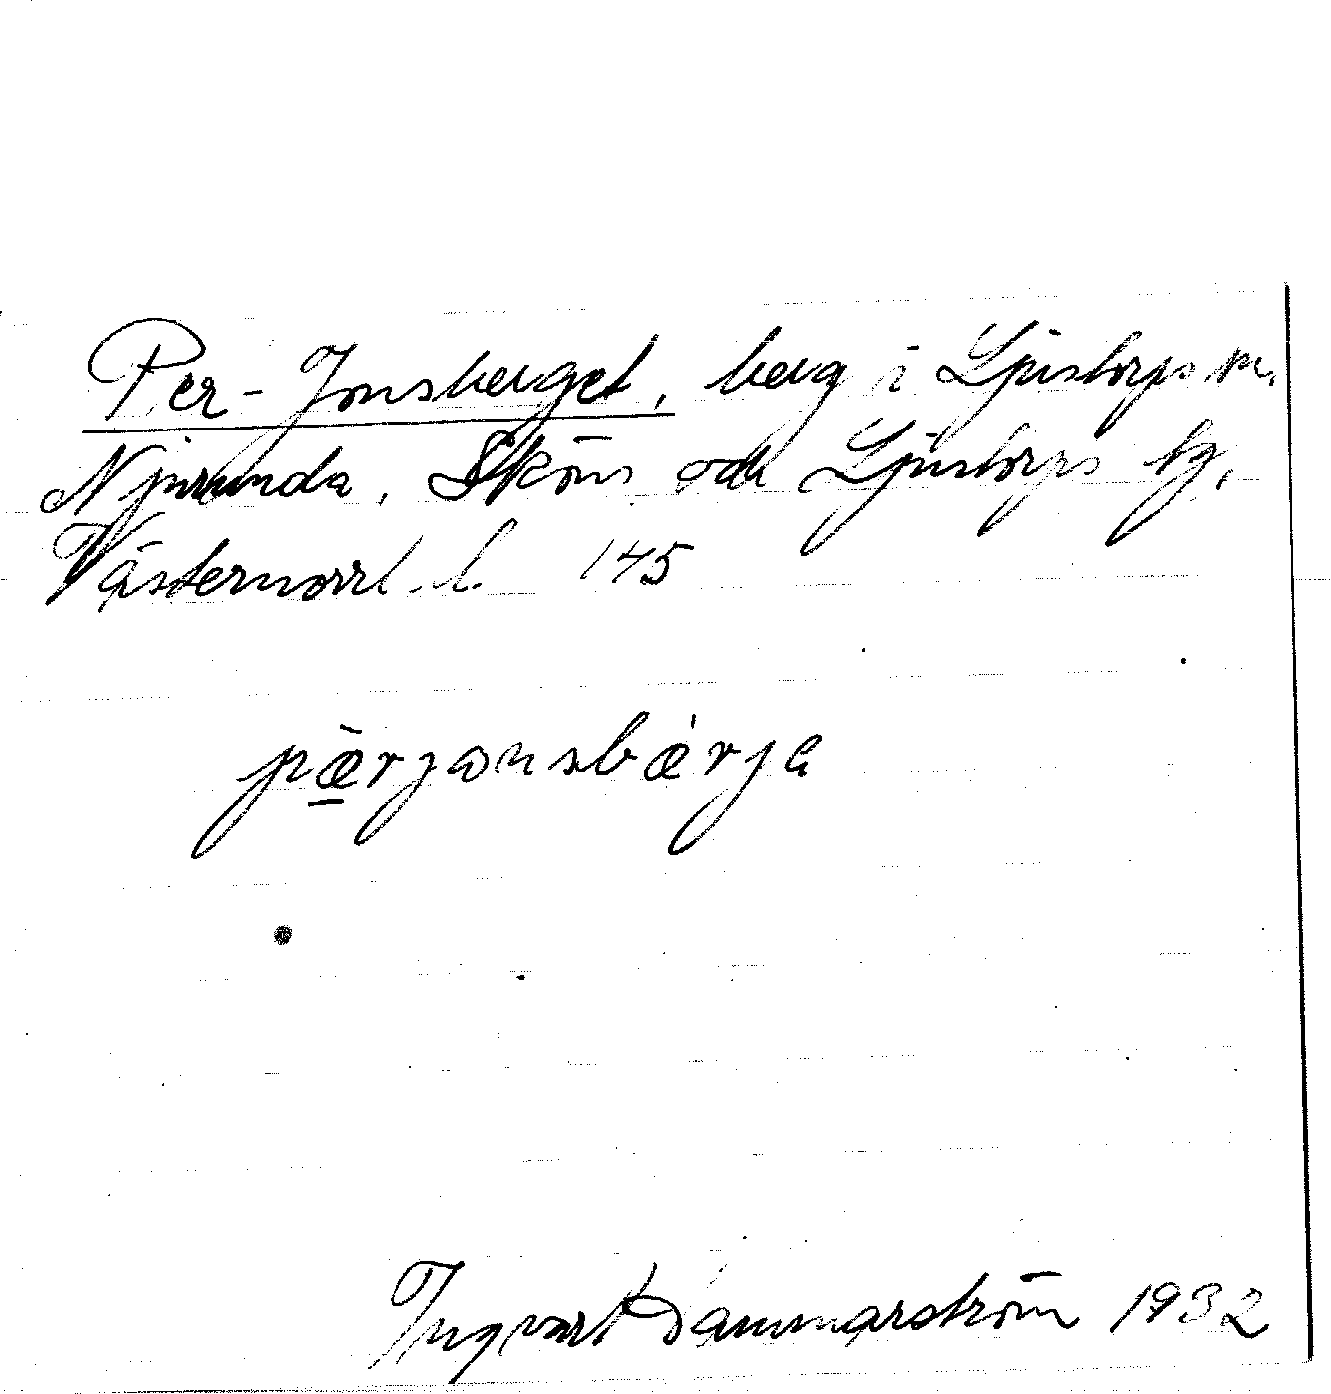 Per-Jonsberget, berg i Ljustorps sn.
Njurunda, Sköns och Ljustorps tg,
Västernorrl. l. 145
pæ̀rjonsbærja
Ingvart Dammarström 1932